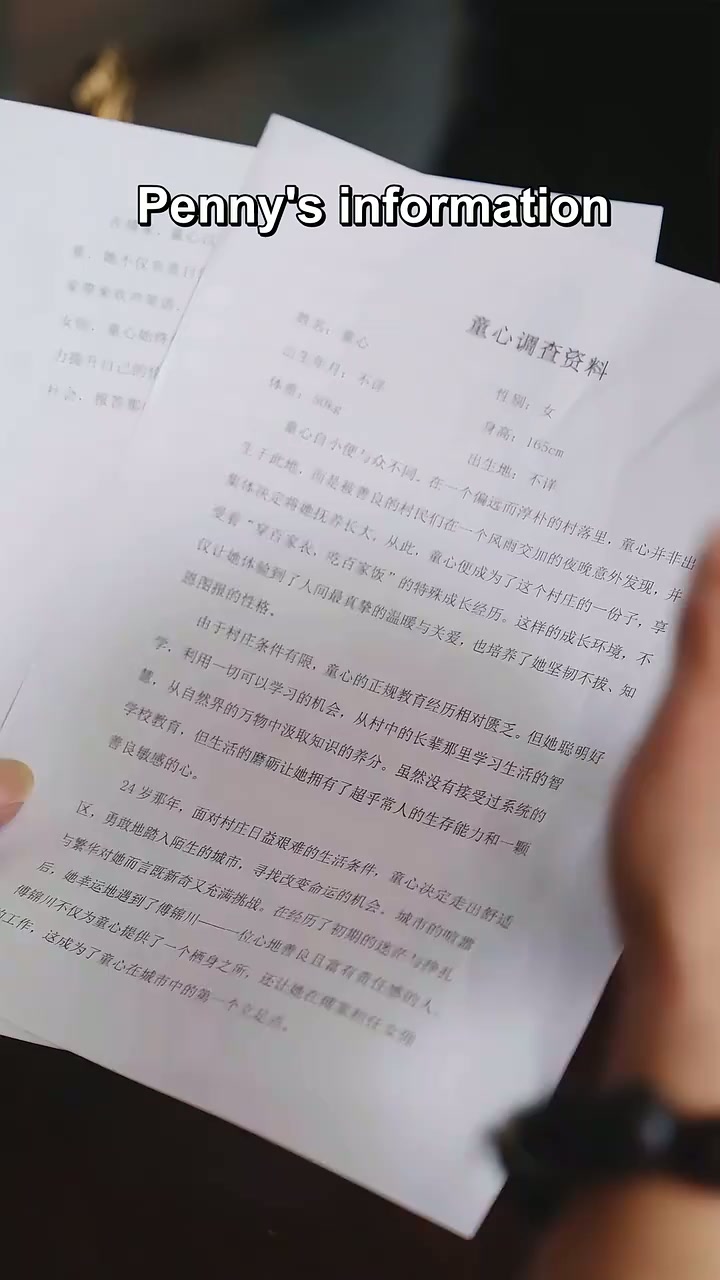 Penny's information
童心调查资料
姓名：童心
性别：女
出生年月：不详
身高：165cm
体重：50kg
出生地：不详
童心自小便与众不同。在一个偏远而淳朴的村落里，童心并非出
生于此地，而是被善良的村民们在一个风雨交加的夜晚意外发现，并
集体决定将她抚养长大。从此，童心便成为了这个村庄的一份子，享
受着“穿百家衣，吃百家饭”的特殊成长经历。这样的成长环境，不
仅让她体验到了人间最真挚的温暖与关爱，也培养了她坚韧不拔、知
恩图报的性格。
由于村庄条件有限，童心的正规教育经历相对匮乏。但她聪明好
学，利用一切可以学习的机会，从村中的长辈那里学习生活的智
慧，从自然界的万物中汲取知识的养分。虽然没有接受过系统的
学校教育，但生活的磨砺让她拥有了超乎常人的生存能力和一颗
善良敏感的心。
24 岁那年，面对村庄日益艰难的生活条件，童心决定走出舒适
区，勇敢地踏入陌生的城市，寻找改变命运的机会。城市的喧嚣
与繁华对她而言既新奇又充满挑战。在经历了初期的迷茫与挣扎
后，她幸运地遇到了傅锦川——一位心地善良且富有责任感的人。
傅锦川不仅为童心提供了一个栖身之所，还让她在傅家担任女佣
的工作，这成为了童心在城市中的第一个立足点。
童心
，她不仅负责日
家带来欢声笑语，
童心始终
力提升自己的
社会、报答